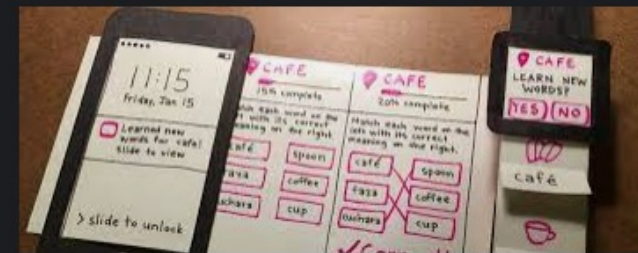 11:15
Friday, Jan 15
Learned new
words for cafe!
slide to view
> slide to unlock
CAFE
15% complete
Match each word on the
left with its correct
meaning on the right.
café
spoon
taza
coffee
cuchara
cup
CAFE
20% complete
Match each word on the
left with its correct
meaning on the right.
café
spoon
taza
coffee
cuchara
cup
CAFE
LEARN NEW
WORDS?
YES NO
café